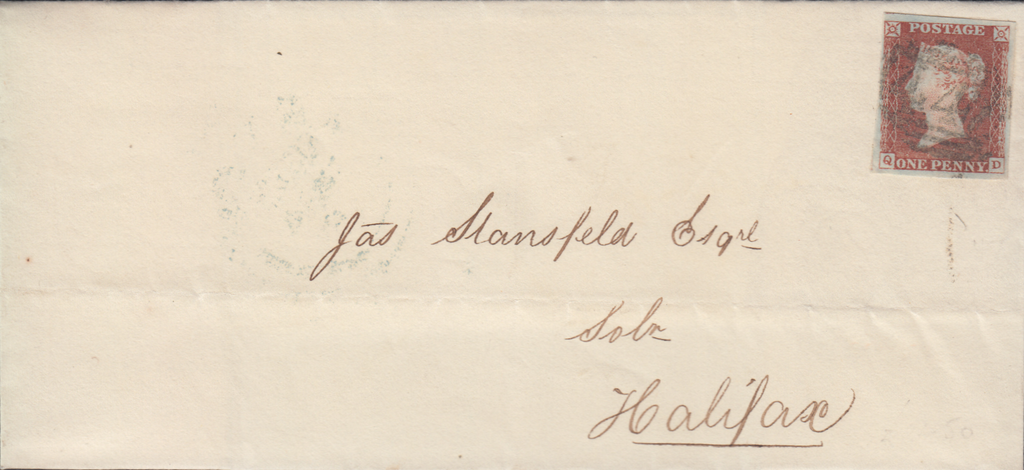 POSTAGE
Q ONE PENNY D
Jas Stansfeld Esqre
Solr
Halifax
50